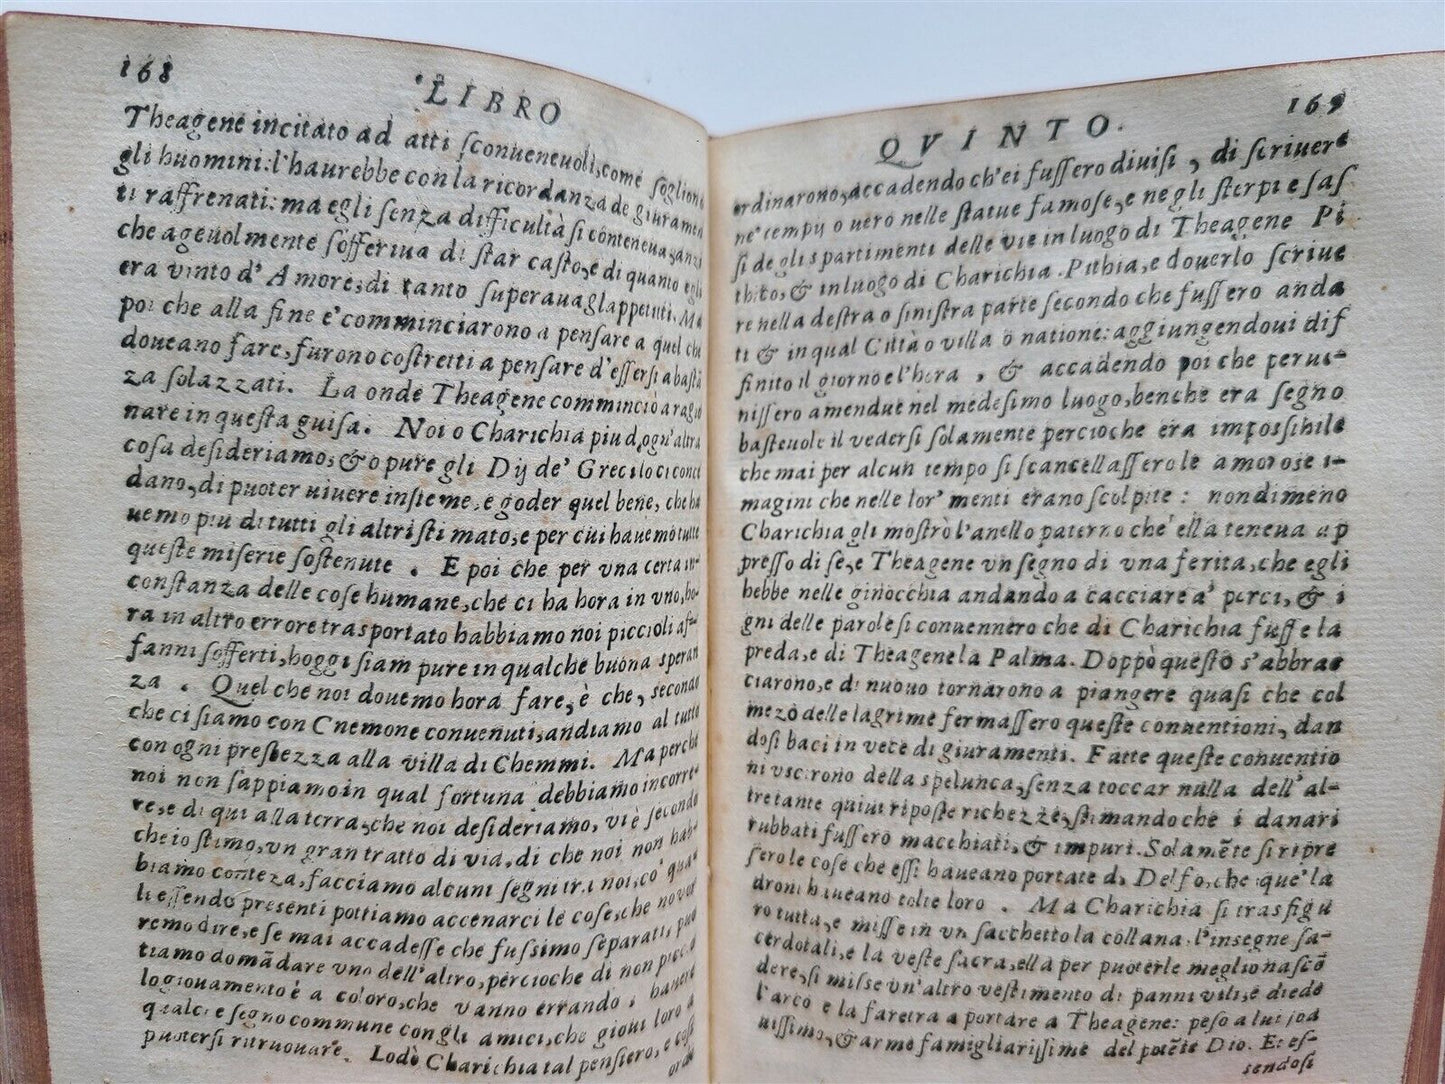 168
LIBRO
Theagene incitato ad atti ſconueneuoli, come ſogliono
gli huomini: l'haurebbe con la ricordanza de giuramen
ti raffrenati: ma egli ſenza difficultà ſi conteneua, anzi
che ageuolmente ſofferiua di ſtar caſto, e di quanto egli
era vinto d'Amore, di tanto ſuperaua gl'appetiti. Ma
poi che alla fine e' comminciarono a penſare a quel che
doueano fare, furono coſtretti a penſare d'eſſerſi a baſtā
za ſolazzati. La onde Theagene comminciò a ragio
nare in queſta guiſa. Noi o Charichia piu d'ogn'altra
coſa deſideriamo, & o pure gli Dij de' Greci lo ci conce
dano, di puoter uiuere inſieme, e goder quel bene, che ha
uemo piu di tutti gli altri ſtimato, e per cui hauemo tutte
queſte miſerie ſoſtenute. E poi che per vna certa in-
conſtanza delle coſe humane, che ci ha hora in vno, ho-
ra in altro errore traſportato habbiamo noi piccioli af-
fanni ſofferti, hoggi ſiam pure in qualche buona speran
za. Quel che noi douemo hora fare, è che, secondo
che ci ſiamo con Cnemone conuenuti, andiamo al tutto
con ogni preſtezza alla villa di Chemmi. Ma perche
noi non ſappiamo in qual fortuna debbiamo incorre-
re, e di qui alla terra, che noi deſideriamo, vi è ſecondo
che io ſtimo, vn gran tratto di via, di che noi non hab-
biamo conteza, facciamo alcuni ſegni tra noi, co' qua
li eſſendo preſenti pottiamo accenarci le coſe, che no vor
remo dire, e se mai accadeſſe che fuſſimo ſeparati, puo
tiamo domādare vno dell'altro, percioche di non picco
lo giouamento è a coloro, che vanno errando i hauere
qualche segno commune con gli amici, che gioui loro a
puoterſi ritruouare. Lodò Charichia tal penſiero, e coſi
ordi
QVINTO.
169
ordinarono, accadendo ch'ei fuſſero diuiſi, di ſcriuere
ne' tempij o uero nelle ſtatue famoſe, e ne gli ſterpi e ſaſ
ſi de gli ſpartimenti delle vie in luogo di Theagene Pi
thio, & in luogo di Charichia. Pithia, e douerlo ſcriue
re nella deſtra o ſiniſtra parte ſecondo che fuſſero anda
ti & in qual Città o villa o natione: aggiungendoui dif
finito il giorno e l'hora, & accadendo poi che perue-
niſſero amendue nel medeſimo luogo, benche era ſegno
baſteuole il vederſi ſolamente percioche era impoſſibile
che mai per alcun tempo ſi ſcancellaſſero le amoroſe i-
magini che nelle lor' menti erano ſcolpite: nondimeno
Charichia gli moſtrò l'anello paterno che ella teneua ap
preſſo di ſe, e Theagene vn ſegno di vna ferita, che egli
hebbe nelle ginocchia andando a cacciare a' porci, & i
gni delle parole ſi conuennero che di Charichia fuſſe la
preda, e di Theagene la Palma. Doppò queſto s'abbrac
ciarono, e di nuouo tornarono a piangere quaſi che col
mezò delle lagrime fermaſſero queſte conuentioni, dan
doſi baci in vece di giuramenti. Fatte queſte conuentio
ni vscirono della spelunca, ſenza toccar nulla dell'al-
tre tante quiui riposte richezze, ſtimando che i danari
rubbati fuſſero macchiati, & impuri. Solamēte ſi ripre
ſero le coſe che eſſi haueano portate da Delfo, che que' la
droni haueano tolte loro. Ma Charichia ſi traſfigu
ro tutta, e miſſe in vn ſacchetto la collana. l'inſegne ſa-
cerdotali, e la veſte ſacra, ella per puoterle meglio naſcō
dere, ſi miſſe vn'altro veſtimento di panni vili, e diede
l'arco e la faretra a portare a Theagene: peſo a lui ſoa
uiſſimo, & arme famigliariſſime del potēte Dio. Et eſ-
sendoſi